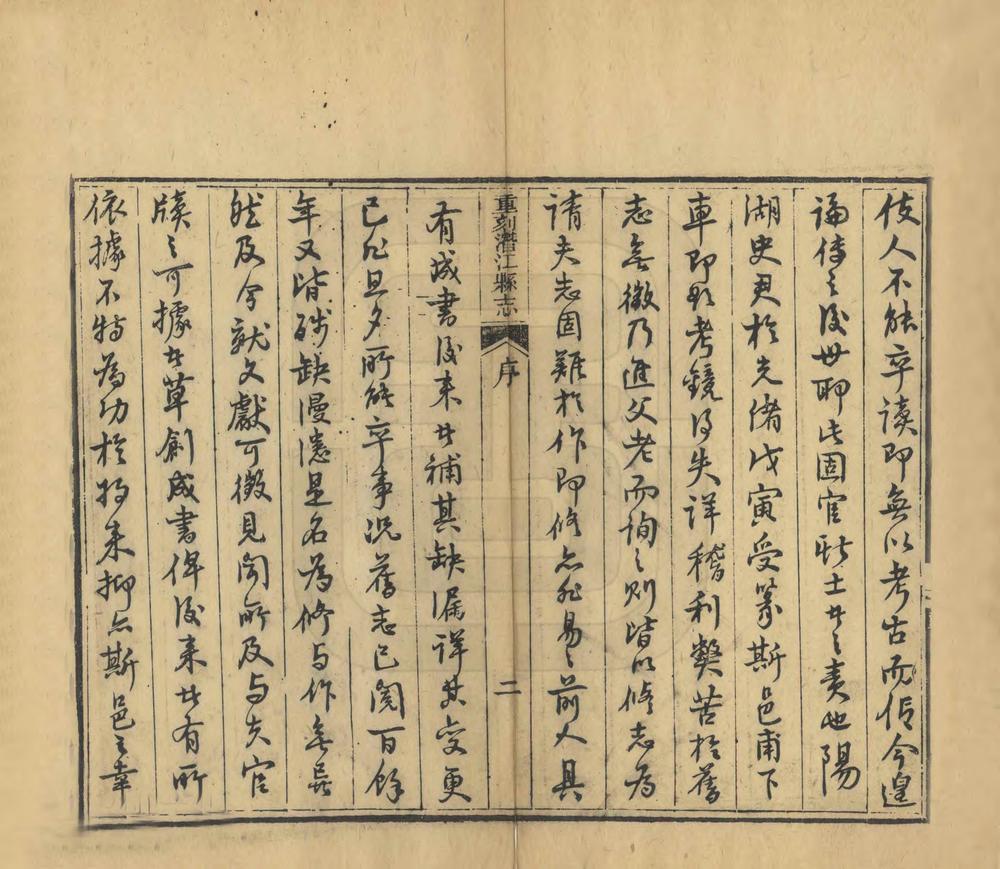 伎人不能卒读即無以考古而信今遑
論傳之後世耶此固官斯土者之責也陽
湖史君於光緒戊寅受篆斯邑甫下
車即取考鏡得失詳稽利弊苦於舊
志無徵乃進父老而詢之則皆以修志為
請夫志固難於作即修亦非易之前人具
重刻潛江縣志
序
二
有成書後来者補其缺漏詳其变更
已非旦夕所能卒事况舊志已閲百餘
年又皆殘缺漫漶是名為修与作無异
然及今就文獻可徵見闻所及与夫官
牘之可據者草創成書俾後来者有所
依據不特為功於将来抑亦斯邑之幸